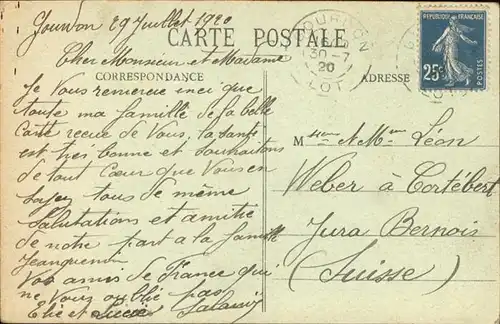 Gourdon 29 Juillet 1920
CARTE POSTALE
Cher Monsieur et Madame
CORRESPONDANCE
ADRESSE
Je Vous remercie ainsi que
toute ma famille de la belle
Carte recue de Vous, la santé
est très bonne et souhaitons
de tout Cœur que Vous en
soyez tous de même
Salutations et amitie
de notre part a la famille
Jeanguenin
Vos amis de France qui
ne Vous oublie pas
Elie et Salanié
GOURDON
30-7
20
LOT
REPUBLIQUE FRANÇAISE
25c
POSTES
M et Mme Léon
Weber à Cortébert
Jura Bernois
(Suisse)